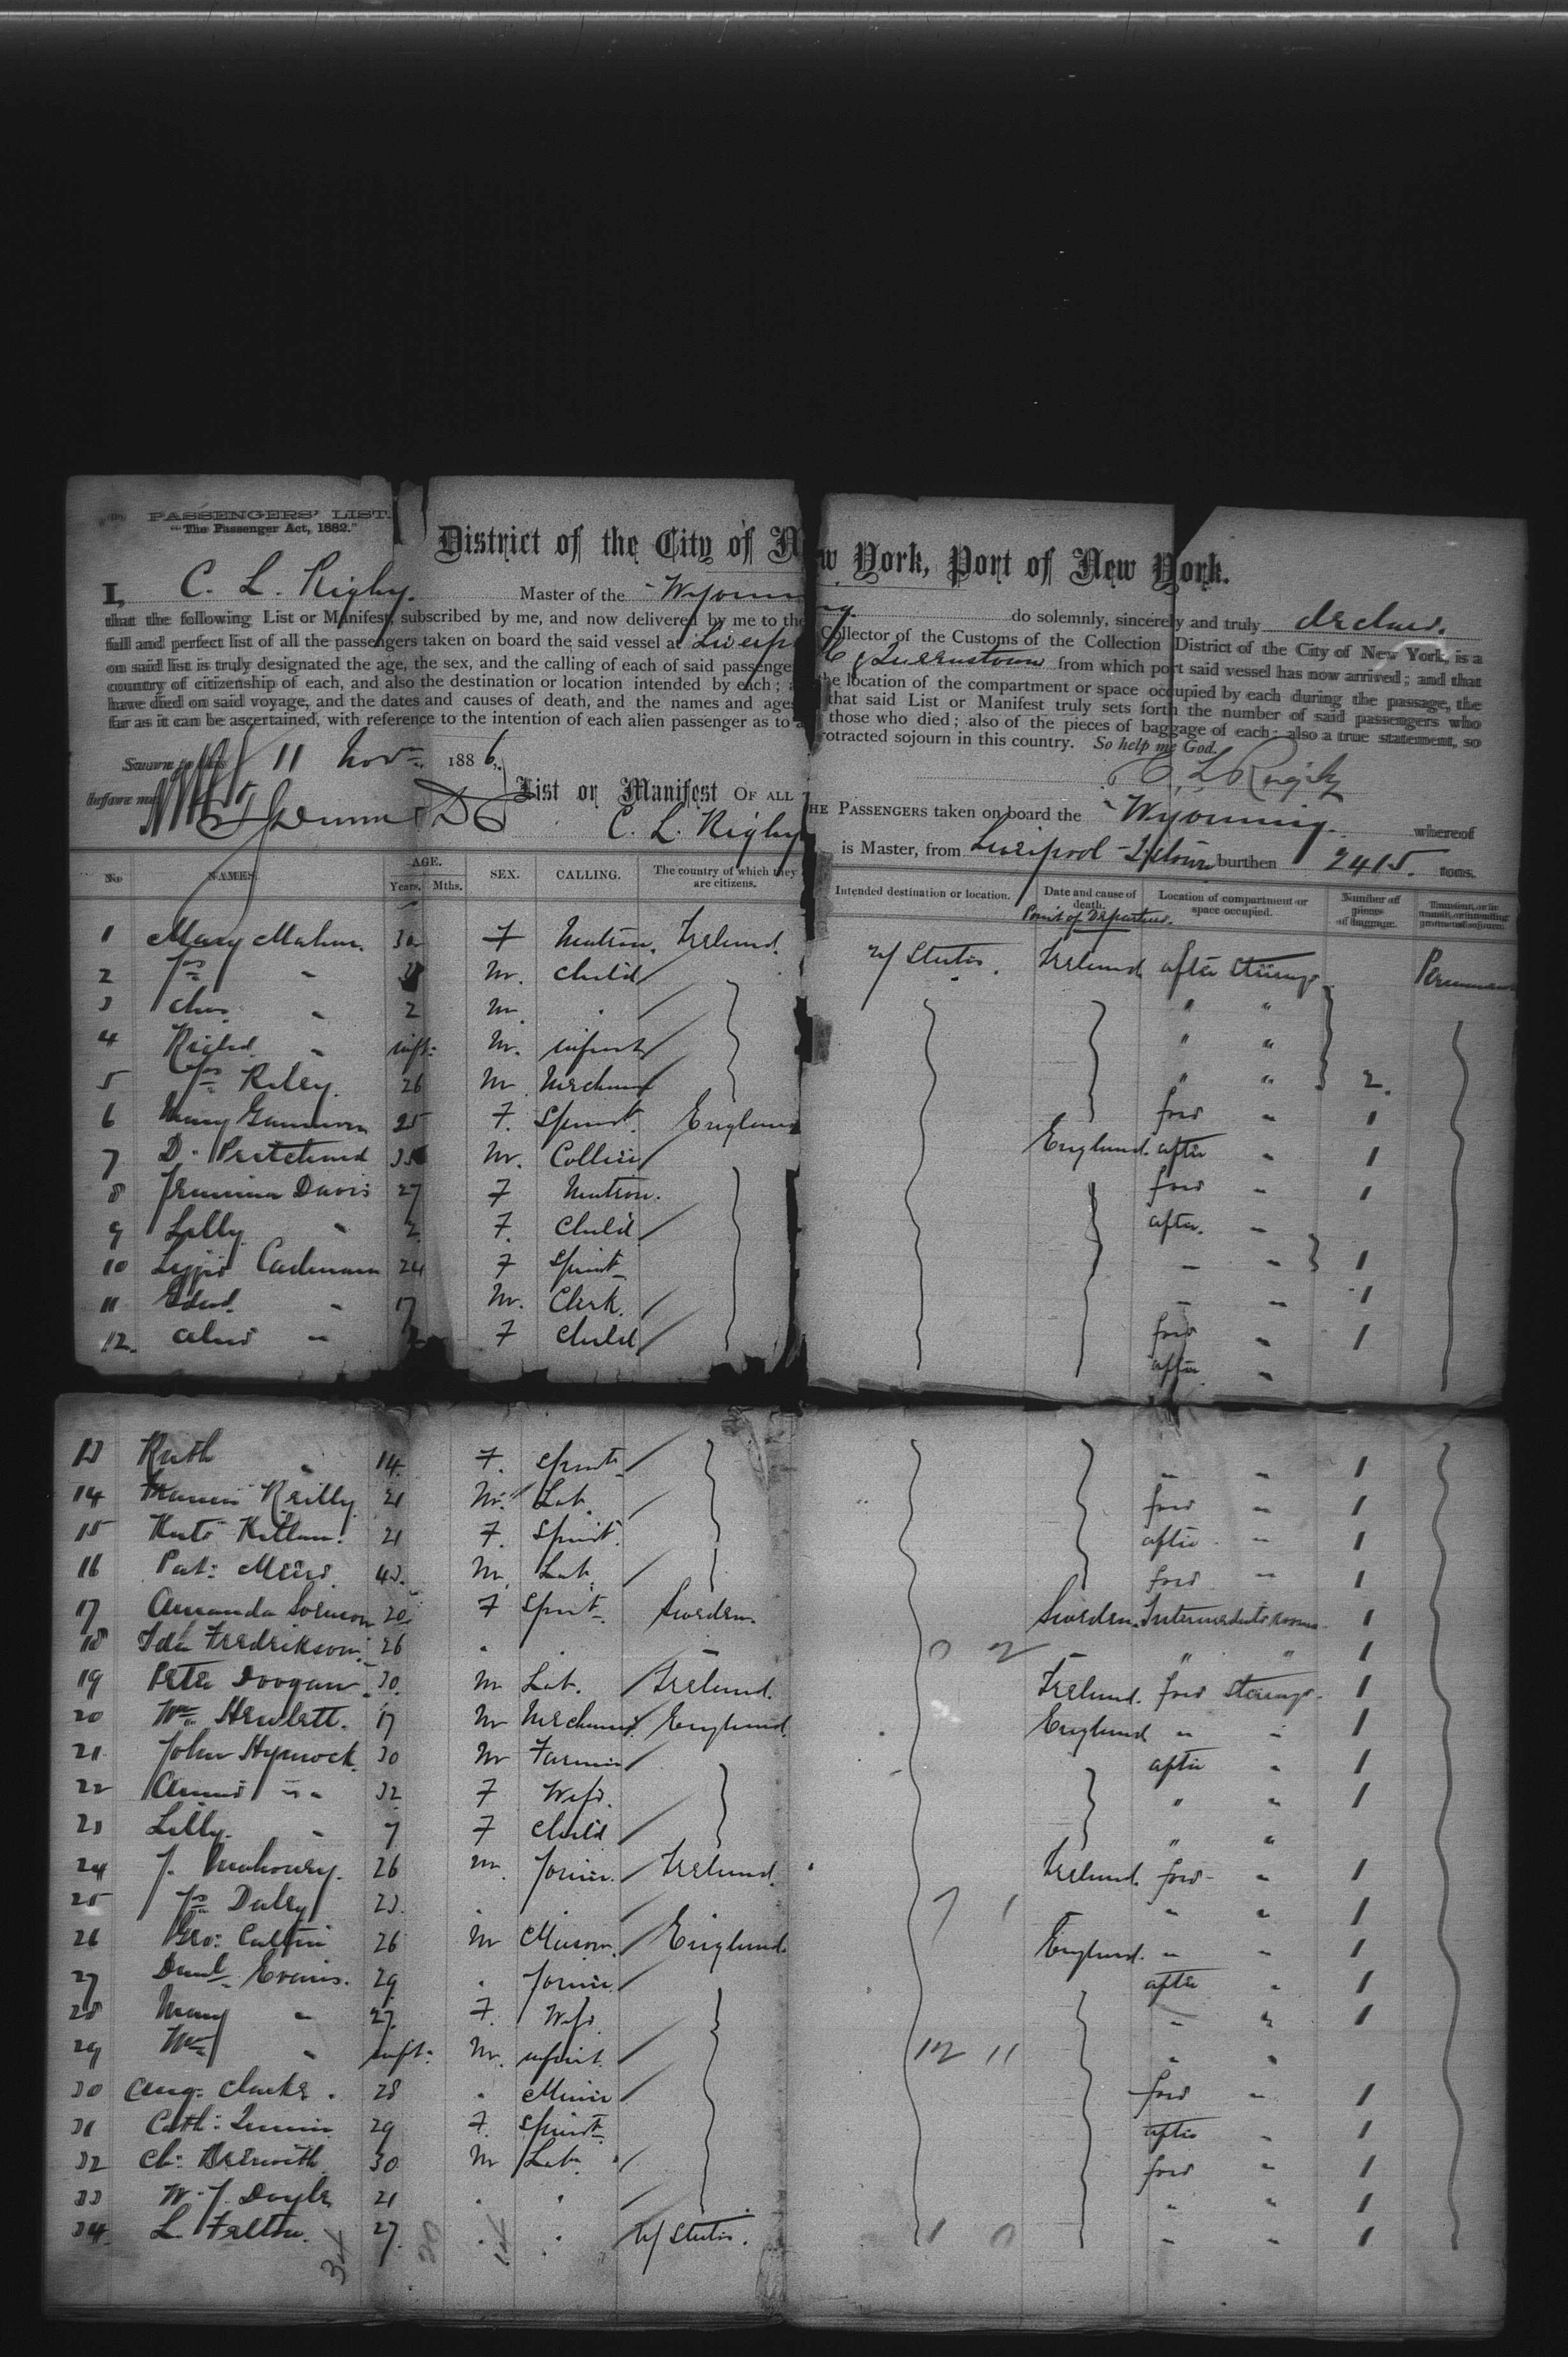 PASSENGERS' LIST.
"The Passenger Act, 1882."
District of the City of New York, Port of New York.
I, C. L. Rigby. Master of the "Wyoming. do solemnly, sincerely and truly declare.
that the following List or Manifest, subscribed by me, and now delivered by me to the Collector of the Customs of the Collection District of the City of New York, is a
full and perfect list of all the passengers taken on board the said vessel at Liverpool & Queenstown from which port said vessel has now arrived; and that
on said list is truly designated the age, the sex, and the calling of each of said passengers the location of the compartment or space occupied by each during the passage, the
country of citizenship of each, and also the destination or location intended by each; that said List or Manifest truly sets forth the number of said passengers who
have died on said voyage, and the dates and causes of death, and the names and ages those who died; also of the pieces of baggage of each; also a true statement, so
far as it can be ascertained, with reference to the intention of each alien passenger as to protracted sojourn in this country. So help me God.
Sworn to this 11 Nov 1886. C. L. Rigby
before me
List or Manifest OF ALL THE PASSENGERS taken on board the "Wyoming. whereof
C. L. Rigby is Master, from Liverpool - Qstown burthen 2415. tons.
No NAMES. AGE. Years. Mths. SEX. CALLING. The country of which they are citizens. Intended destination or location. Date and cause of death. Point of Departure. Location of compartment or space occupied. Number of pieces of baggage. Transient, or in transit, or intending protracted sojourn.
1 Mary Mahon. F Matron. Ireland. U/States. Ireland after Steerage
2 Jas " M. child " "
3 Chas. " 2 M. " " "
4 Richd. " inft: M. infant " "
5 Jas Riley. 26 M 2.
6 Mary 25 F. Spinst. England ford " 1
7 D. Pritchard M. Collier England. after " 1
8 Jemima Davis 27 F Matron. ford " 1
9 Lilly " 2 F. Child after. "
10 Lizzie Cadman 24 F Spinst - " 1
11 Edwd. " 17 M. Clerk. " " 1
12. Alice " F Child ford " 1
after "
13 Ruth " 14. F. Spinst " " 1
14 Reilly 21 M. Lab. ford " 1
15 Kate 21 F. Spinst. after " 1
16 Pat: M. Lab. ford " 1
17 Amanda 20. F Spinst Sweden. Sweden. Intermediate rooms 1
18 Ida Fredrikson. 26 " " " " " 1
19 Peter Doogan 30. M Lab. Ireland. Ireland. ford Steerage 1
20 Wm Hewlett. 17 M England. England " " 1
21 John Hymock 30 M Farmer after " 1
22 Annie " " 32 F Wife. " " 1
23 Lilly. " 7 F child " "
24 J. Mahoney. 26 M. Joiner. Ireland. Ireland. ford " 1
25 Jas Daley 23. " " " " 1
26 Geo: 26 M Mason. England England. " " 1
27 Danl Evans. 29 " Joiner after " 1
28 Mary " 27. F. Wife. " " 1
29 Wm " inft: M. infant. " "
30 Aug: Clarke. 28 " Miner ford " 1
31 Cath: 29 F. Spinst. after " 1
32 Ch: 30 M Lab. ford " 1
33 W. J. Doyle 21 " " " " 1
34. L. Felton. 27. " " U/States. " " 1